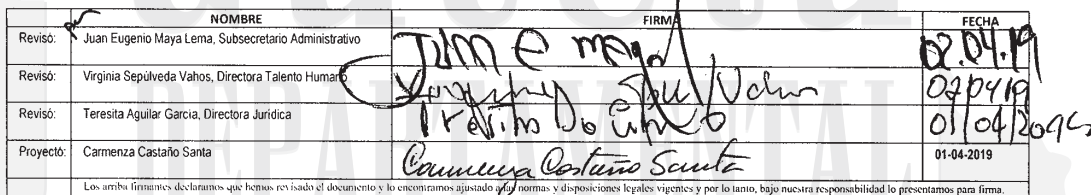 NOMBRE FIRMA FECHA
Revisó: Juan Eugenio Maya Lema, Subsecretario Administrativo 02.04.19
Revisó: Virginia Sepúlveda Vahos, Directora Talento Humano 020419
Revisó: Teresita Aguilar Garcia, Directora Jurídica 01/04/209
Proyectó: Carmenza Castaño Santa Carmenza Castaño Santa 01-04-2019
Los arriba firmantes declaramos que hemos revisado el documento y lo encontramos ajustado a las normas y disposiciones legales vigentes y por lo tanto, bajo nuestra responsabilidad lo presentamos para firma.